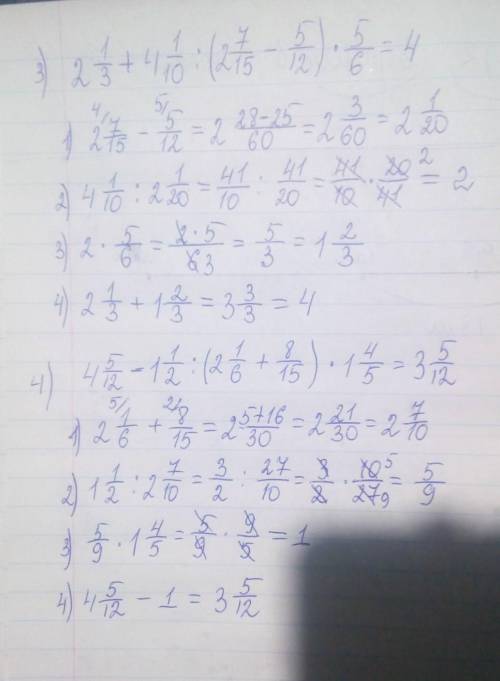 3) 2 1/3 + 4 1/10 : (2 7/15 − 5/12) · 5/6 = 4
1) 2 ⁴⁄7/15 − ⁵⁄5/12 = 2 28−25/60 = 2 3/60 = 2 1/20
2) 4 1/10 : 2 1/20 = 41/10 : 41/20 = 41/10 · 20²/41 = 2
3) 2 · 5/6 = 2·5/6 3 = 5/3 = 1 2/3
4) 2 1/3 + 1 2/3 = 3 3/3 = 4
4) 4 5/12 − 1 1/2 : (2 1/6 + 8/15) · 1 4/5 = 3 5/12
1) 2 ⁵⁄1/6 + ²⁄8/15 = 2 5+16/30 = 2 21/30 = 2 7/10
2) 1 1/2 : 2 7/10 = 3/2 : 27/10 = 3/2 · 10 5/27 9 = 5/9
3) 5/9 · 1 4/5 = 5/9 · 9/5 = 1
4) 4 5/12 − 1 = 3 5/12